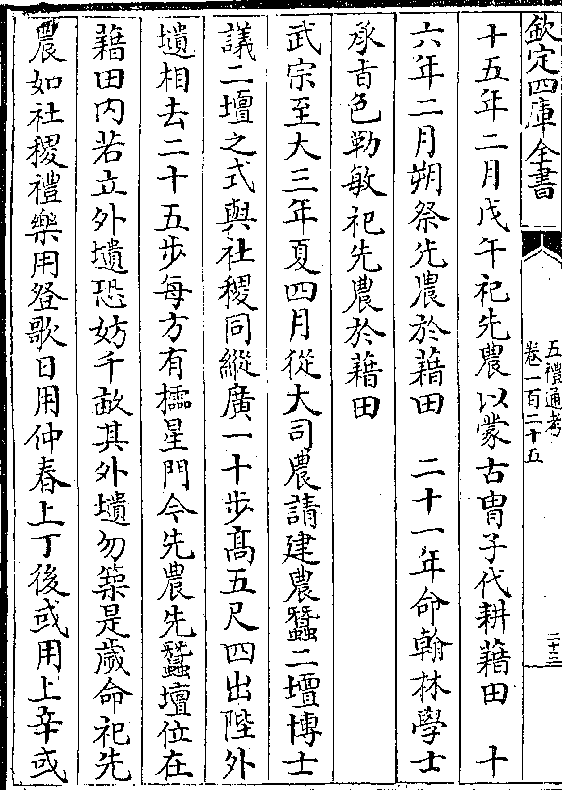 欽定四庫全書
五禮通考
卷一百二十五
二十三
十五年二月戊午祀先農以蒙古胄子代耕藉田　十
六年二月朔祭先農於藉田　二十一年命翰林學士
承㫖色勒敏祀先農於藉田
武宗至大三年夏四月從大司農請建農蠶二壇博士
議二壇之式與社稷同縱廣一十步髙五尺四出陛外
壝相去二十五步每方有櫺星門今先農先蠶壇位在
藉田内若立外壝恐妨千畝其外壝勿築是嵗命祀先
農如社稷禮樂用登歌日用仲春上丁後或用上辛或